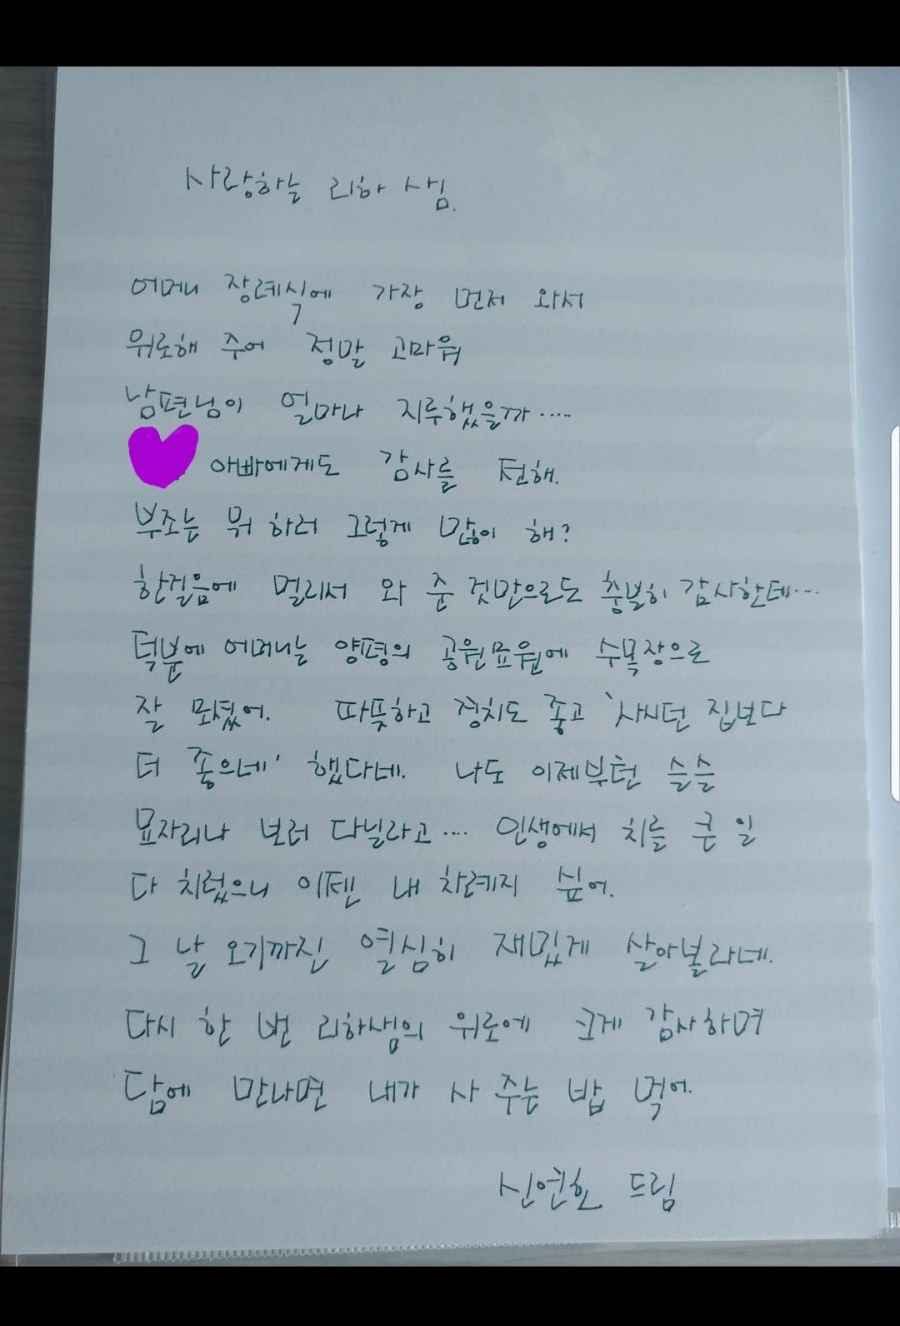 사랑하는 리하 샘.
어머니 장례식에 가장 먼저 와서
위로해 주어 정말 고마워
남편님이 얼마나 지루했을까....
아빠에게도 감사를 전해.
부조는 뭐 하러 그렇게 많이 해?
한걸음에 멀리서 와 준 것만으로도 충분히 감사한데...
덕분에 어머니는 양평의 공원묘원에 수목장으로
잘 모셨어. 따뜻하고 경치도 좋고 '사시던 집보다
더 좋으네' 했다네. 나도 이제부턴 슬슬
묘자리나 보러 다닐라고.... 인생에서 치를 큰 일
다 치렀으니 이젠 내 차례지 싶어.
그 날 오기까진 열심히 재밌게 살아볼라네.
다시 한 번 리하샘의 위로에 크게 감사하며
담에 만나면 내가 사 주는 밥 먹어.
신연호 드림